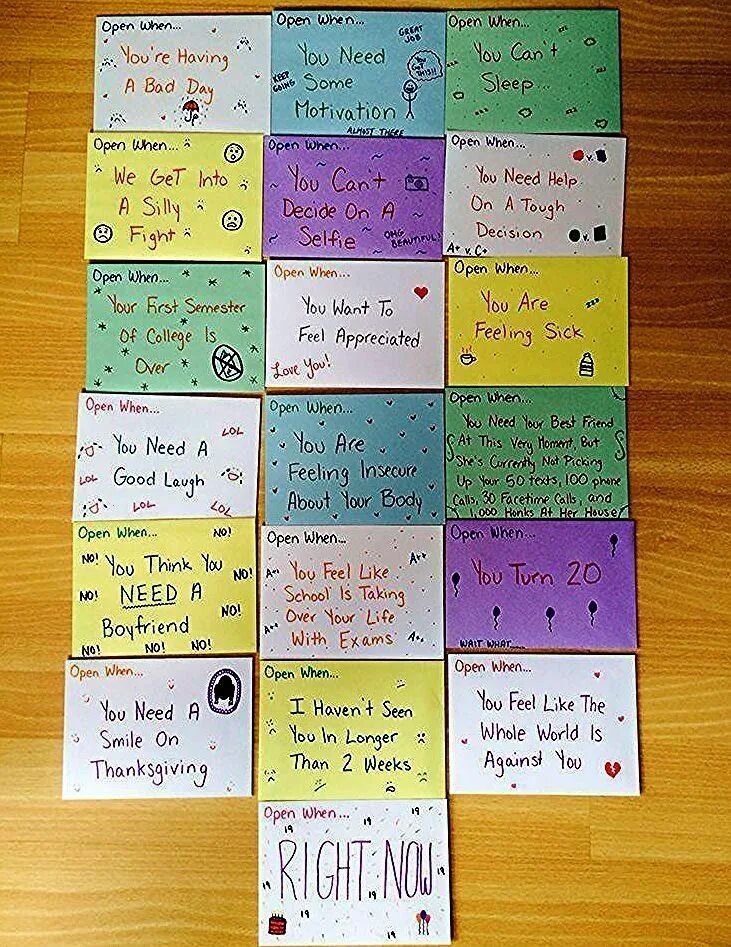 Open When...
You're Having
A Bad Day
Open When...
GREAT
JOB
You Need
Some
Motivation
KEEP
GOING
You
GOT
THIS!!
ALMOST THERE
Open When...
You Can't
Sleep...
Open When...
We GeT Into
A Silly
Fight
Open When...
You Can't
Decide On A
Selfie
OMG
BEAUTIFUL!
Open When...
v.
You Need Help
On A Tough
Decision
v.
A+ v. C+
Open When...
Your First Semester
Of College Is
Over
Open When...
You Want To
Feel Appreciated
Love You!
Open When...
You Are
Feeling Sick
zzz
Open When...
LOL
You Need A
Good Laugh
LOL
LOL
LOL
Open When...
You Are
Feeling Insecure
About Your Body
Open When...
You Need Your Best Friend
At This Very Moment, But
She's Currently Not Picking
Up Your 50 texts, 100 phone
Calls, 30 Facetime Calls, and
1,000 Honks At Her House!
Open When...
NO!
NO!
You Think You
NO!
NEED A
NO!
Boyfriend
NO!
NO!
NO!
NO!
Open When...
A++
You Feel Like
School Is Taking
Over Your Life
With Exams
Open When...
You Turn 20
WAIT WHAT....
Open When...
You Need A
Smile On
Thanksgiving
Open When...
I Haven't Seen
You In Longer
Than 2 Weeks
Open When...
You Feel Like The
Whole World Is
Against You
Open When...
19
19
19
RIGHT NOW
19
19
19
19
19